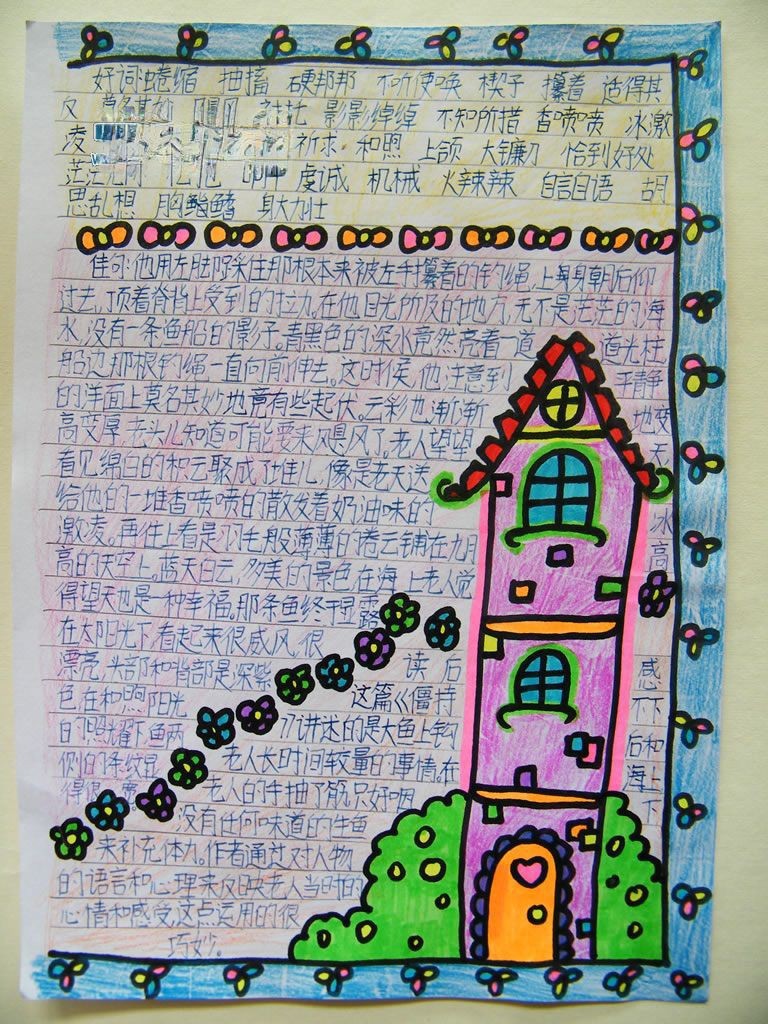 好词:蜷缩 抽搐 硬邦邦 不听使唤 楔子 攥着 适得其
反 莫名其妙 衬托 影影绰绰 不知所措 香喷喷 冰激
凌 祈求 和煦 上颌 大镰刀 恰到好处
茫茫 虔诚 机械 火辣辣 自言自语 胡
思乱想 胸鲐鳍 身大力壮
佳句:他用左脚踩住那根本来被左手攥着的钓绳,上身朝后仰
过去,顶着脊背上受到的拉力。在他目光所及的地方,无不是茫茫的海
水,没有一条渔船的影子。青黑色的深水竟然亮着一道 道光柱
船边那根钓绳一直向前伸去。这时候,他注意到 平静
的洋面上莫名其妙地竟有些起伏。云彩也渐渐 地变
高变厚,老头儿知道可能要来风暴风了。老人望望 天
看见绵白的积云聚成了堆儿,像是老天送
给他的一堆香喷喷的散发着奶油味的 冰
激凌。再往上看是羽毛般薄薄的卷云铺在九月 高
高的天空上。蓝天白云,多美的景色在海上老人觉
得望天也是一种幸福。那条鱼终于显露
在太阳光下,看起来很威风,很
漂亮,头部和背部是深紫 读 后 感
色在和煦阳光 这篇《僵持 不下
的照耀下,鱼两 》讲述的是大鱼上钩 后和
侧的条纹显 老人长时间较量的事情,在 海上
得很 老人的手抽了筋,只好咽 下
没有任何味道的生鱼
来补充体力。作者通过对人物
的语言和心理来反映老人当时的
心情和感受,这点运用的很
巧妙。